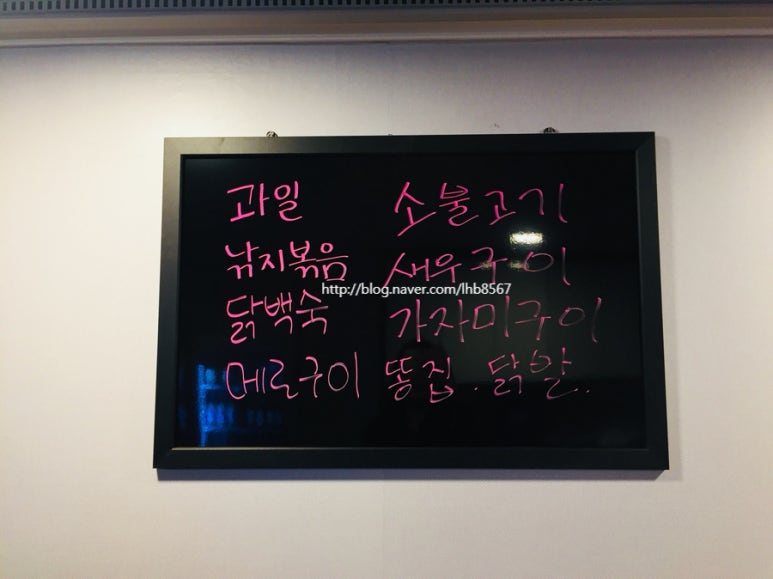 과일 소불고기
낚지볶음 새우구이
http://blog.naver.com/lhb8567
닭백숙 가자미구이
메로구이 똥집. 닭알.